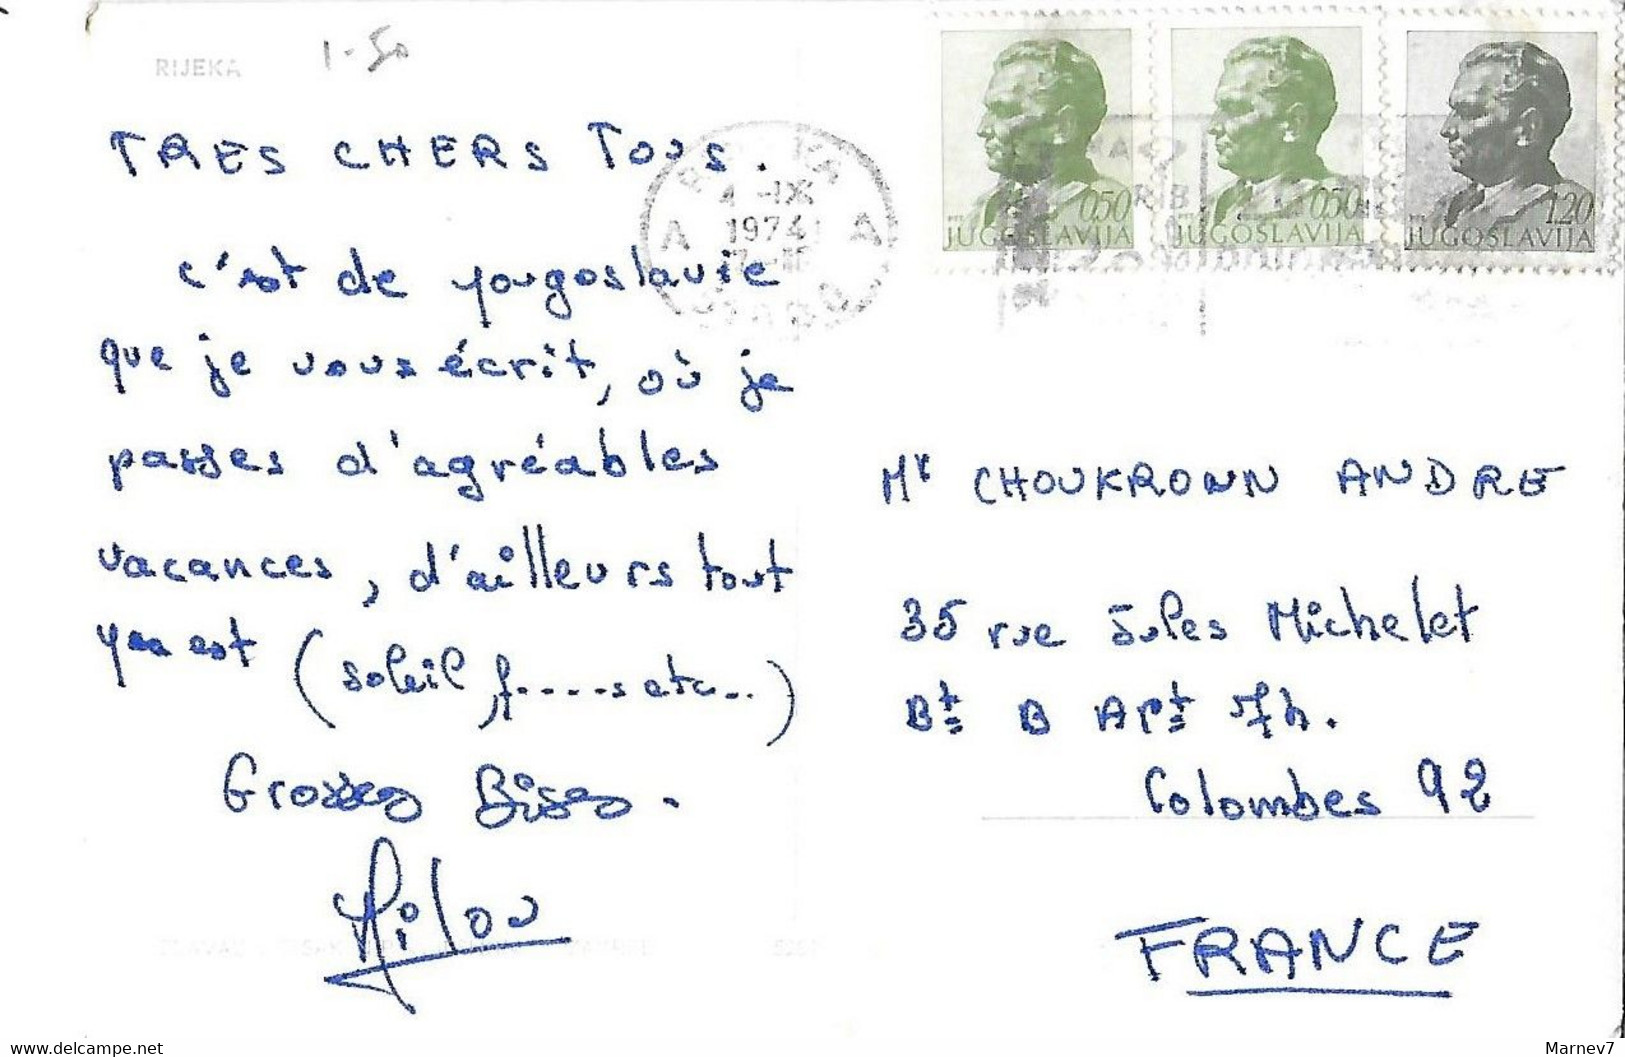 RIJEKA
1-50
TRES CHERS TOUS.
c'est de yougoslavie
que je vous écrit, où je
passes d'agréables
vacances, d'ailleurs tout
y est (soleil, f.....s etc...)
Grosses Bises.
Milou
1974
A A
0,50
JUGOSLAVIJA
0,50
JUGOSLAVIJA
1,20
JUGOSLAVIJA
Mr CHOUKROUNN ANDRE
35 rue Jules Michelet
Bt B Apt 57h.
Colombes 92
FRANCE
Marnev7